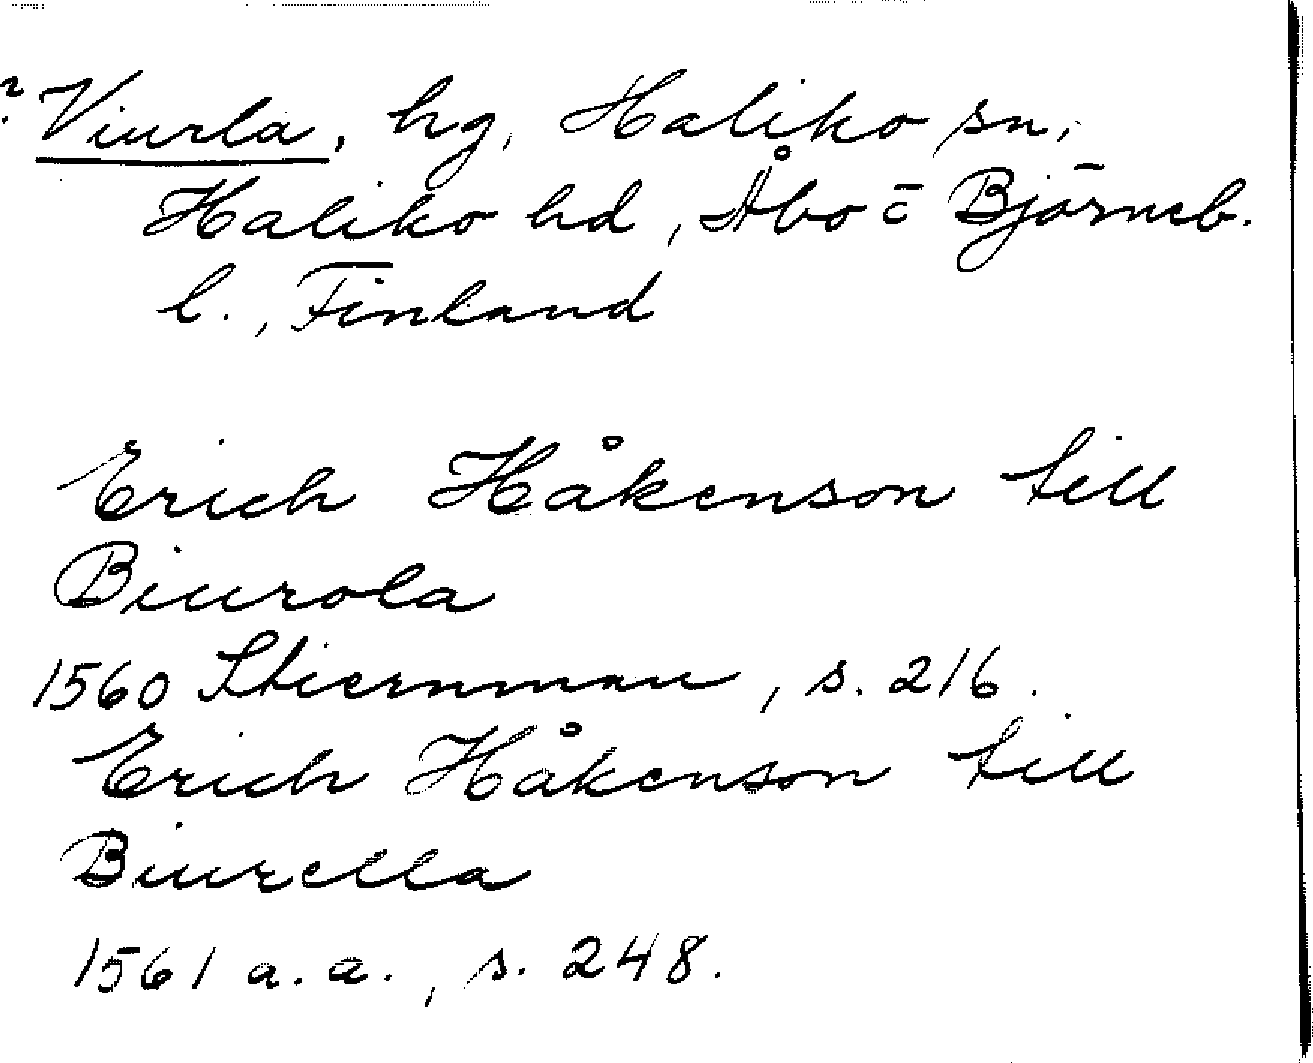 ? Viurla, hg, Haliko sn,
Haliko hd, Åbo o Björneb.
l., Finland
Erich Håkenson till
Biurola
1560 Stiernman, s. 216.
Erich Håkenson till
Biurella
1561 a.a., s. 248.